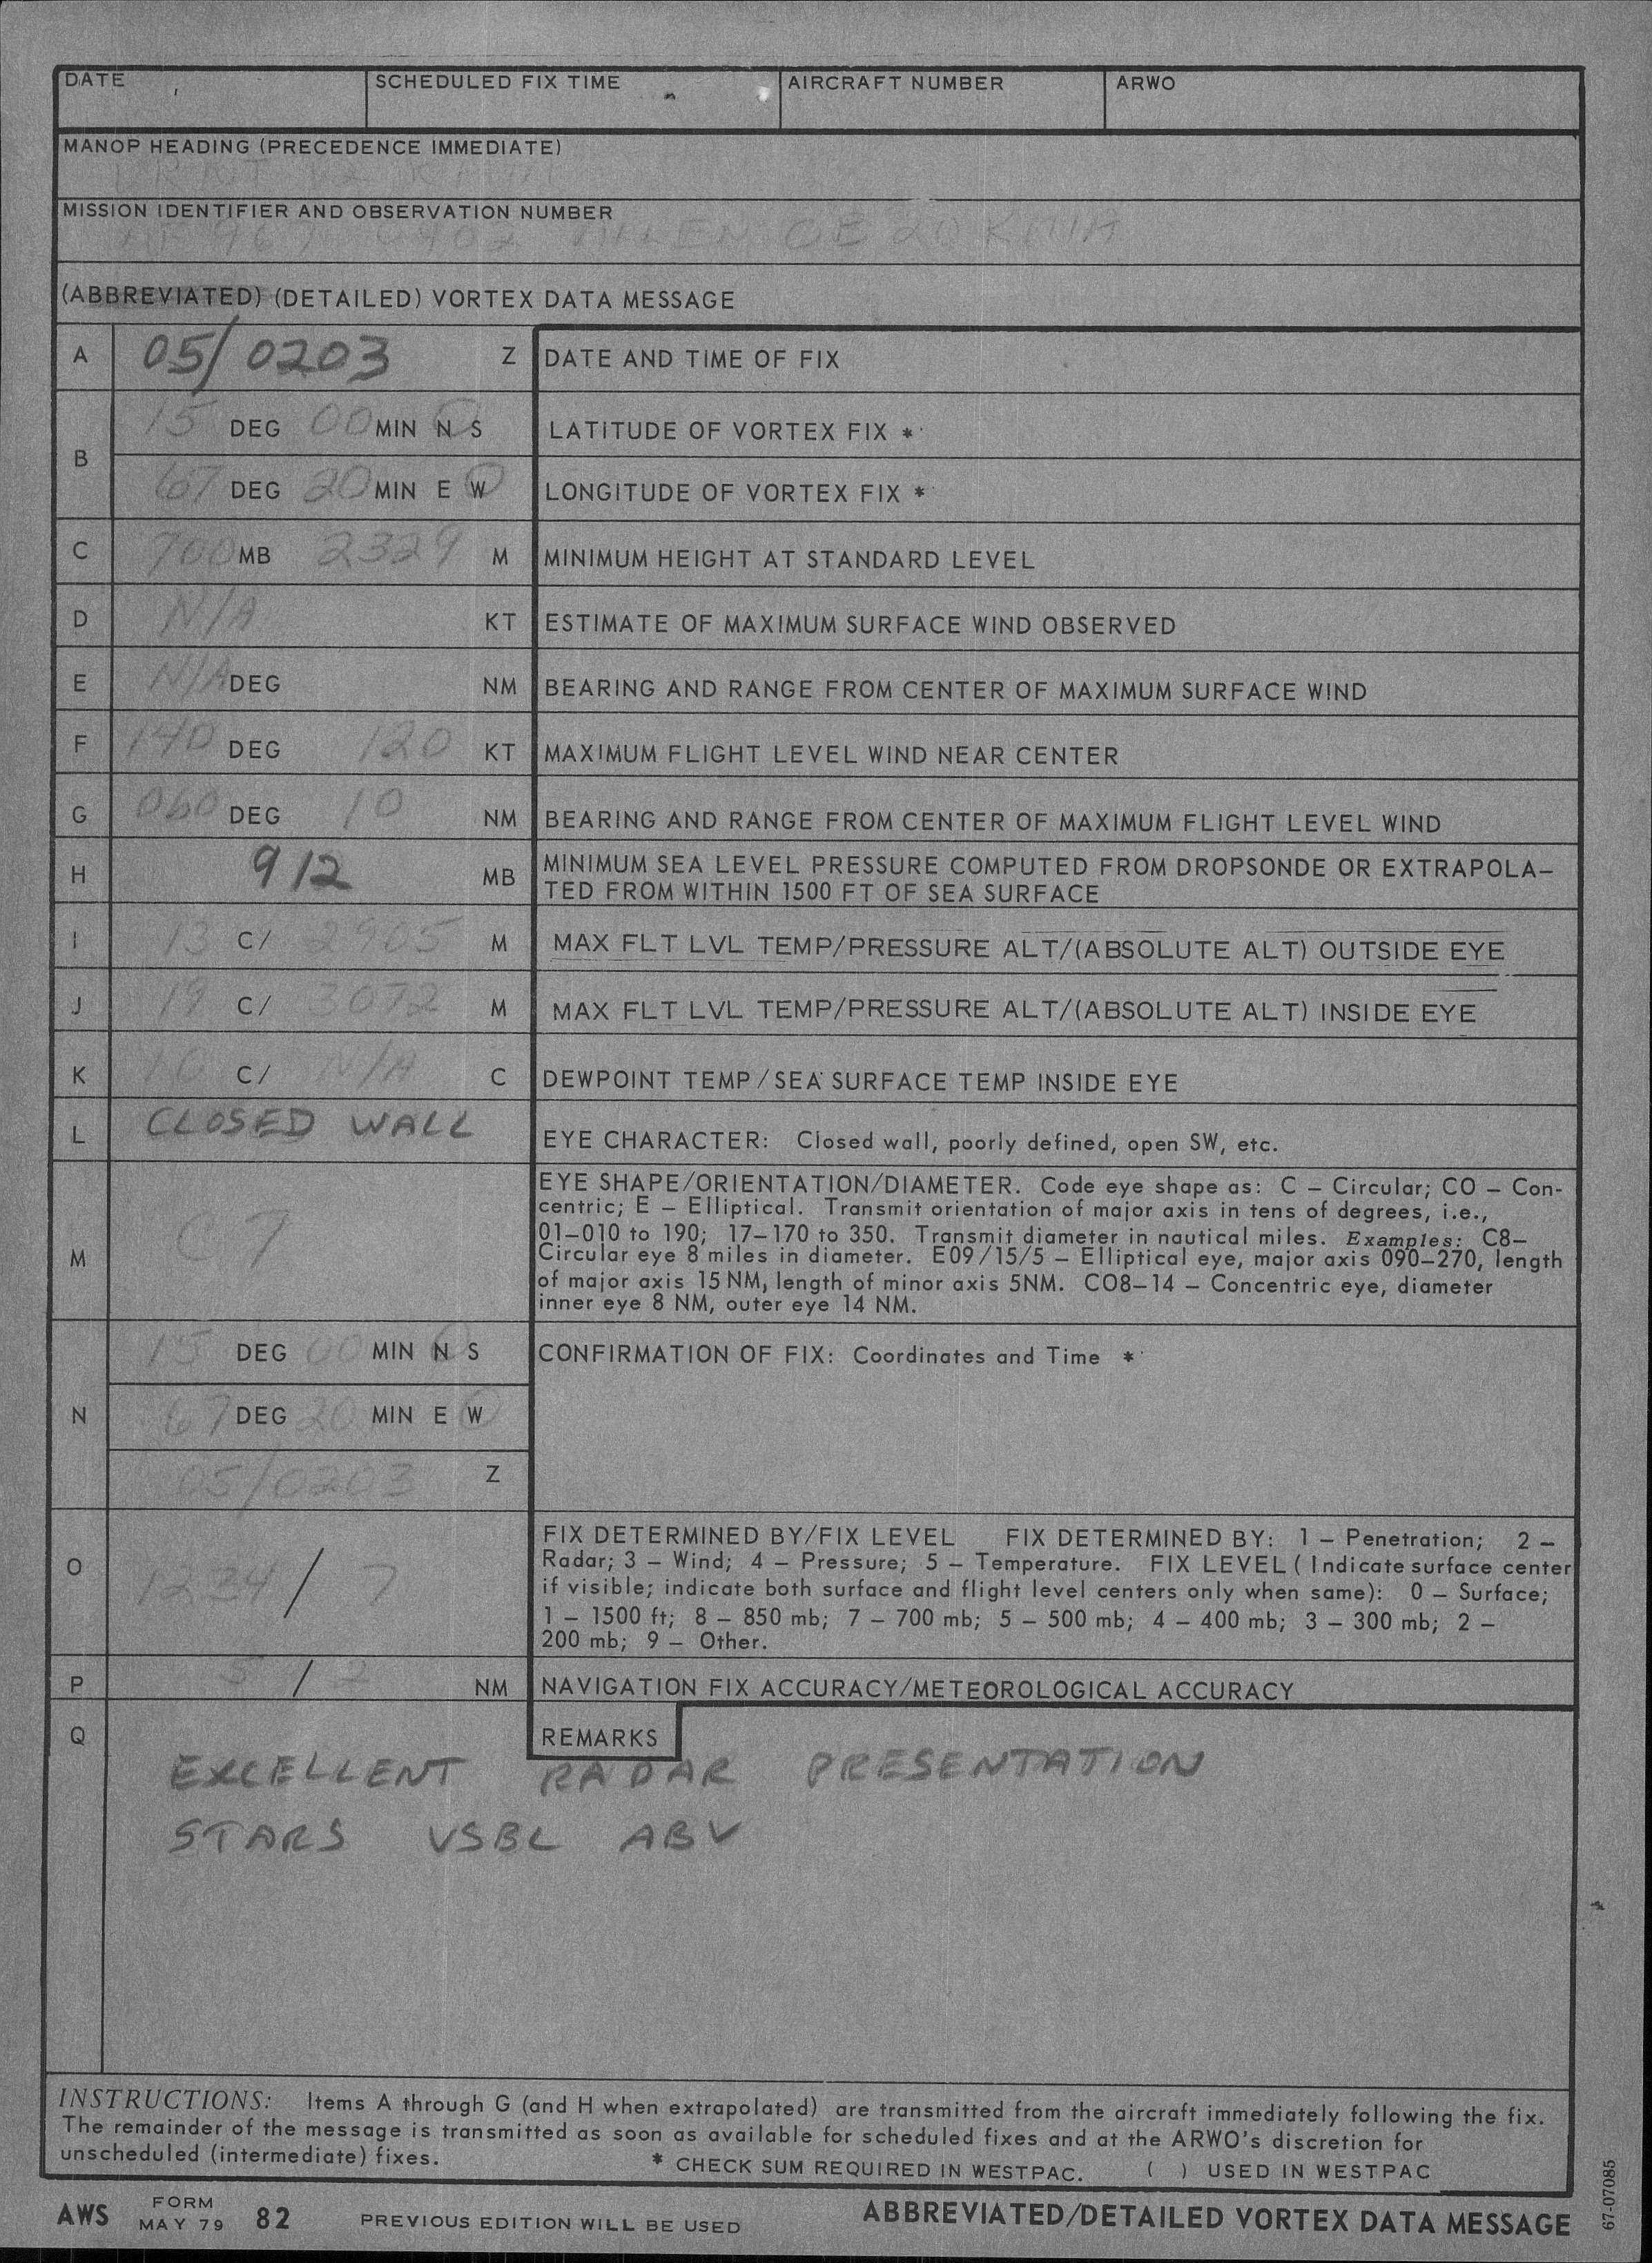 DATE SCHEDULED FIX TIME AIRCRAFT NUMBER ARWO
MANOP HEADING (PRECEDENCE IMMEDIATE)
MISSION IDENTIFIER AND OBSERVATION NUMBER
ALLEN OB 20
(ABBREVIATED) (DETAILED) VORTEX DATA MESSAGE
A 05/0203 Z DATE AND TIME OF FIX
B 15 DEG 00 MIN N S LATITUDE OF VORTEX FIX *
67 DEG 20 MIN E W LONGITUDE OF VORTEX FIX *
C 700 MB 2329 M MINIMUM HEIGHT AT STANDARD LEVEL
D N/A KT ESTIMATE OF MAXIMUM SURFACE WIND OBSERVED
E N/A DEG NM BEARING AND RANGE FROM CENTER OF MAXIMUM SURFACE WIND
F 140 DEG 120 KT MAXIMUM FLIGHT LEVEL WIND NEAR CENTER
G 060 DEG 10 NM BEARING AND RANGE FROM CENTER OF MAXIMUM FLIGHT LEVEL WIND
H 912 MB MINIMUM SEA LEVEL PRESSURE COMPUTED FROM DROPSONDE OR EXTRAPOLA-
TED FROM WITHIN 1500 FT OF SEA SURFACE
I 13 C/ 2905 M MAX FLT LVL TEMP/PRESSURE ALT/(ABSOLUTE ALT) OUTSIDE EYE
J 19 C/ 3072 M MAX FLT LVL TEMP/PRESSURE ALT/(ABSOLUTE ALT) INSIDE EYE
K 10 C/ N/A C DEWPOINT TEMP/SEA SURFACE TEMP INSIDE EYE
L CLOSED WALL EYE CHARACTER: Closed wall, poorly defined, open SW, etc.
M C7 EYE SHAPE/ORIENTATION/DIAMETER. Code eye shape as: C – Circular; CO – Con-
centric; E – Elliptical. Transmit orientation of major axis in tens of degrees, i.e.,
01–010 to 190; 17–170 to 350. Transmit diameter in nautical miles. Examples: C8–
Circular eye 8 miles in diameter. E09/15/5 – Elliptical eye, major axis 090–270, length
of major axis 15 NM, length of minor axis 5NM. CO8–14 – Concentric eye, diameter
inner eye 8 NM, outer eye 14 NM.
N 15 DEG 00 MIN N S CONFIRMATION OF FIX: Coordinates and Time *
67 DEG 20 MIN E W
05/0203 Z
O 1234 / 7 FIX DETERMINED BY/FIX LEVEL FIX DETERMINED BY: 1 – Penetration; 2 –
Radar; 3 – Wind; 4 – Pressure; 5 – Temperature. FIX LEVEL (Indicate surface center
if visible; indicate both surface and flight level centers only when same): 0 – Surface;
1 – 1500 ft; 8 – 850 mb; 7 – 700 mb; 5 – 500 mb; 4 – 400 mb; 3 – 300 mb; 2 –
200 mb; 9 – Other.
P 5 / 2 NM NAVIGATION FIX ACCURACY/METEOROLOGICAL ACCURACY
Q REMARKS
EXCELLENT RADAR PRESENTATION
STARS VSBL ABV
INSTRUCTIONS: Items A through G (and H when extrapolated) are transmitted from the aircraft immediately following the fix.
The remainder of the message is transmitted as soon as available for scheduled fixes and at the ARWO's discretion for
unscheduled (intermediate) fixes. * CHECK SUM REQUIRED IN WESTPAC. ( ) USED IN WESTPAC
AWS FORM MAY 79 82 PREVIOUS EDITION WILL BE USED ABBREVIATED/DETAILED VORTEX DATA MESSAGE
67-07085